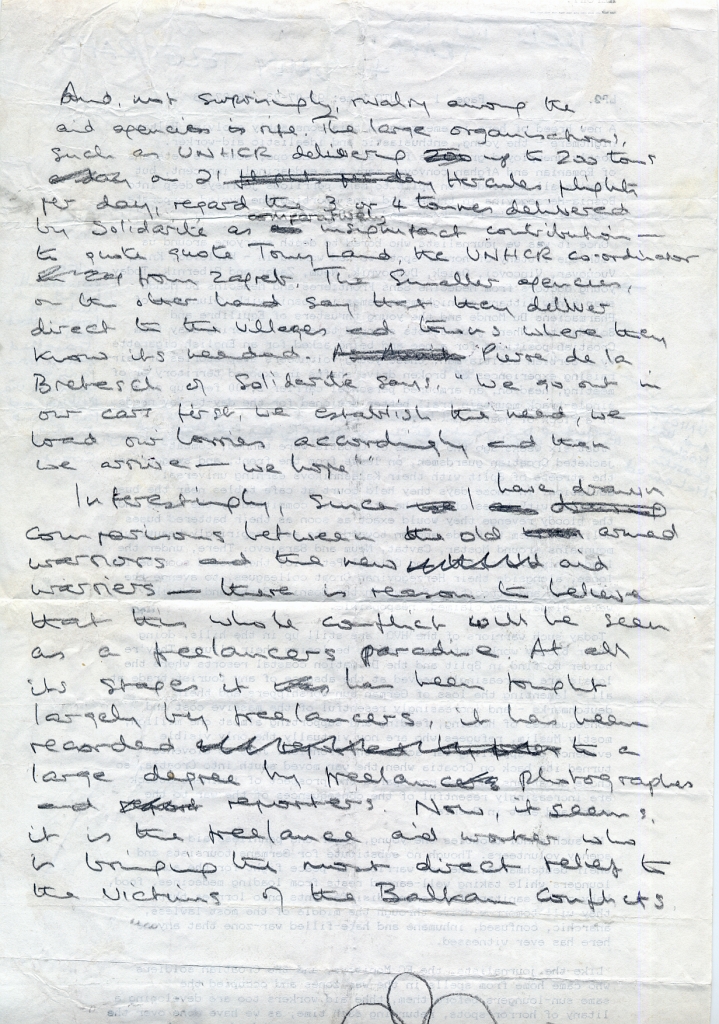 And, not surprisingly, rivalry among the
aid agencies is rife. The large organisations,
such as UNHCR delivering up to 200 tons
a day on 21 flights per day Hercules flights
per day, regard the 3 or 4 tonnes delivered
by Solidarité as comparatively insignificant contribution —
to quote quote Tony Land, the UNHCR co-ordinator
from Zagreb. The smaller agencies,
on the other hand say that they deliver
direct to the villages and towns where they
know its needed. Pierre de la
Bretesch of Solidarité says, "we go out in
our cars first, we establish the need, we
load our lorries accordingly and then
we arrive — we hope"
Interestingly, since I have drawn
comparisons between the old armed
warriors and the new aid
warriers — there is reason to believe
that this whole conflict will be seen
as a freelancers paradise. At all
its stages it has been fought
largely by freelancers, it has been
recorded to a
large degree by freelance photographers
and reporters. Now, it seems,
it is the freelance aid worker who
is bringing the most direct relief to
the victims of the Balkan conflicts